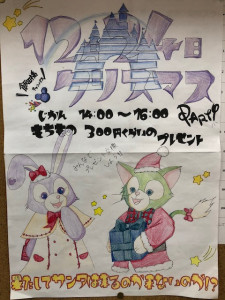 12月24日
クリスマス
PARTY
じかん 14:00〜16:00
もちもの 300円くらいの
プレゼント
はたしてサンタは来るのか来ないのか!?